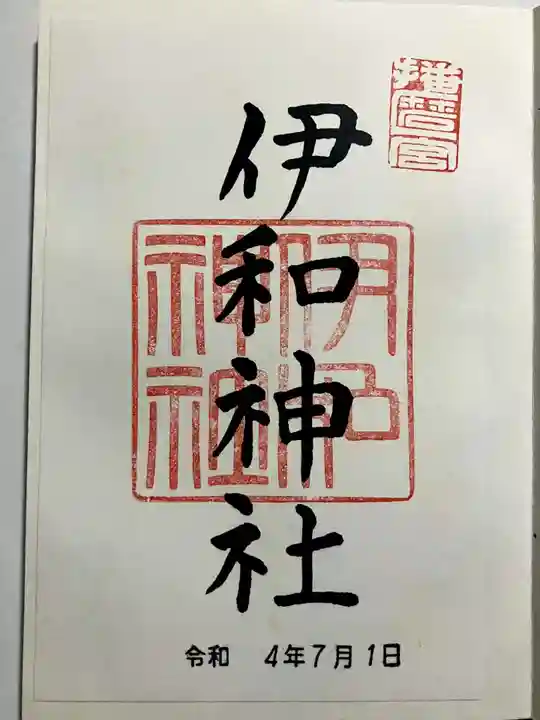 播磨宮
伊和神社
伊和
神社
令和 4年7月1日